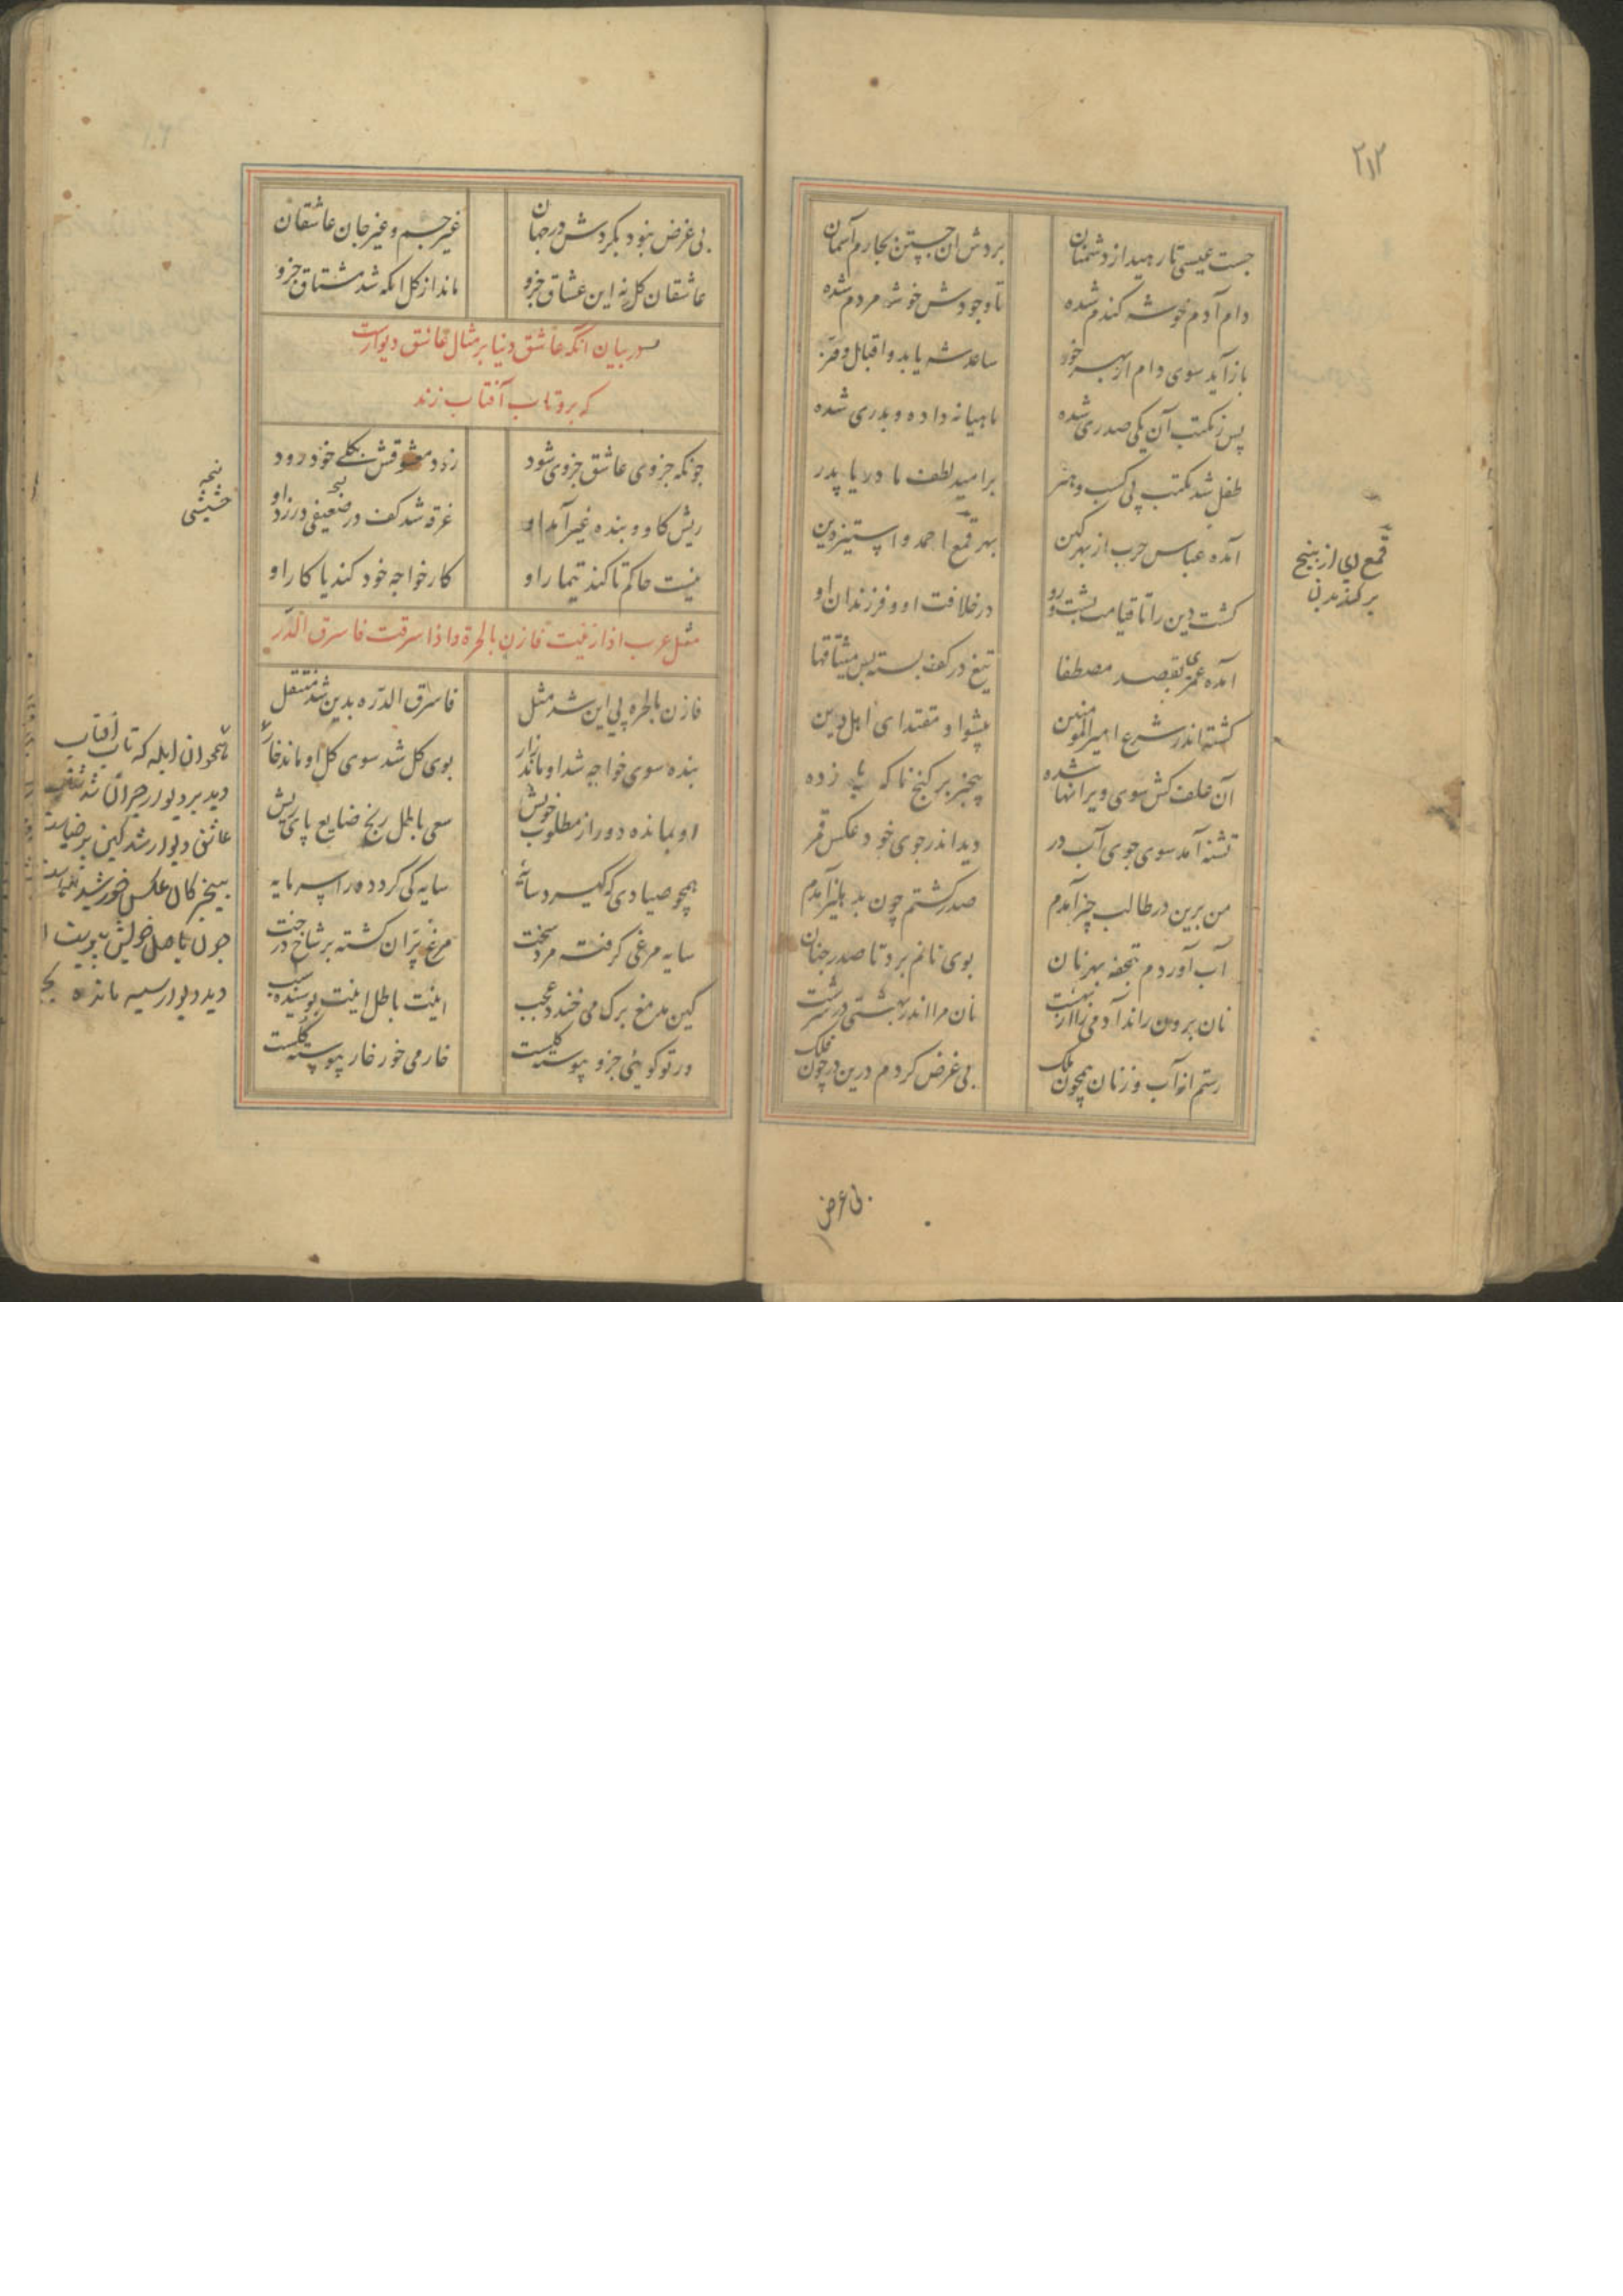 ۲۱۲
جست عیسی تا رهید از دشمنان
بردش آن جستن بچارم آسمان
دام آدم خوشه کندم شده
تا وجودش خوشه مردم شده
باز آید سوی دام از بهر خور
ساعد شه یابد و اقبال و فر
پس ز مکتب آن یکی صدری شده
ماهیانه داده و بدری شده
طفل شد مکتب پی کسب و هنر
بر امید لطف با دریا پدر
آمده عباس حرب از بهر کین
بهر قمع احمد و استیز دین
کشت دین را تا قیامت پشت و رو
در خلافت او و فرزندان او
آمده عمر بقصد مصطفا
تیغ در کف بسته بس میثاقها
کشته اندر شرع امیر المومنین
پیشوا و مقتدای اهل دین
آن علف کش سوی ویرانها شده
بیخبر بر کنج ناکه پا زده
تشنه آمد سوی جوی آب در
دید اندر جوی خود عکس قمر
من برین در طالب چیز آمدم
صدر کشتم چون بدهلیز آمدم
آب آوردم بتحفه بهر نان
بوی نانم برد تا صدر جنان
نان برون راند آدمی را از بهشت
نان مرا اندر بهشتی در سرشت
رستم از آب و ز نان همچون ملک
بی غرض کردم درین در چون فلک
قمع ای از بیخ
بر کندن
بی غرض
بی غرض نبود بکردش در جهان
غیر جسم و غیر جان عاشقان
عاشقان کل نه این عشاق جزو
ماند از کل انکه شد مشتاق جزو
در بیان آنکه عاشق دنیا بر مثال عاشق دیواریست
که برو تاب آفتاب زند
چونکه جزوی عاشق جزوی شود
زود معشوقش بکل خود رود
ریش کاو و بنده غیر آمد او
غرقه شد کف در ضعیفی در زد او
نیست حاکم تا کند تیمار او
کار خواجه خود کند یا کار او
مثل عرب اذا زنیت فازن بالحرة و اذا سرقت فاسرق الدر
فازن بالحره پی این شد مثل
فاسرق الدره بدین شد منتقل
بنده سوی خواجه شد او ماند زار
بوی کل شد سوی کل او ماند خار
او بمانده دور از مطلوب خویش
سعی باطل رنج ضایع پای ریش
همچو صیادی که کیرد سائه
سایه کی کردد ورا سرمایه
سایه مرغی کرفته مرد سخت
مرغ پران کشته بر شاخ درخت
کین مدمغ بر که می خندد عجب
اینت باطل اینت پوسیده سبب
ور تو کوئی جزو پیوسته کلست
خار می خور خار پیوسته کلست
نسخه
حشیشی
همچو آن ابله که تاب آفتاب
دید بر دیوار حیران شد شتاب
عاشق دیوار شد کین پر ضیاست
بیخبر کان عکس خورشید
چون باصل خویش پیوست
دید دیوار سیه مانده بجا